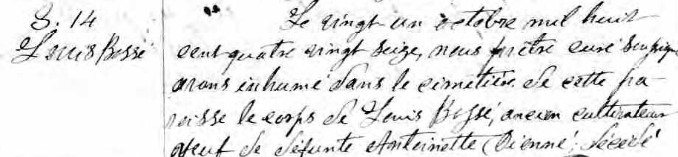 S. 14
Louis Bossé
Le vingt un octobre mil huit
cent quatre vingt seize, nous prêtre curé soussigné
avons inhumé dans le cimetière de cette pa-
roisse le corps de Louis Bossé, ancien cultivateur
veuf de défunte Antoinette Dionne, décédé